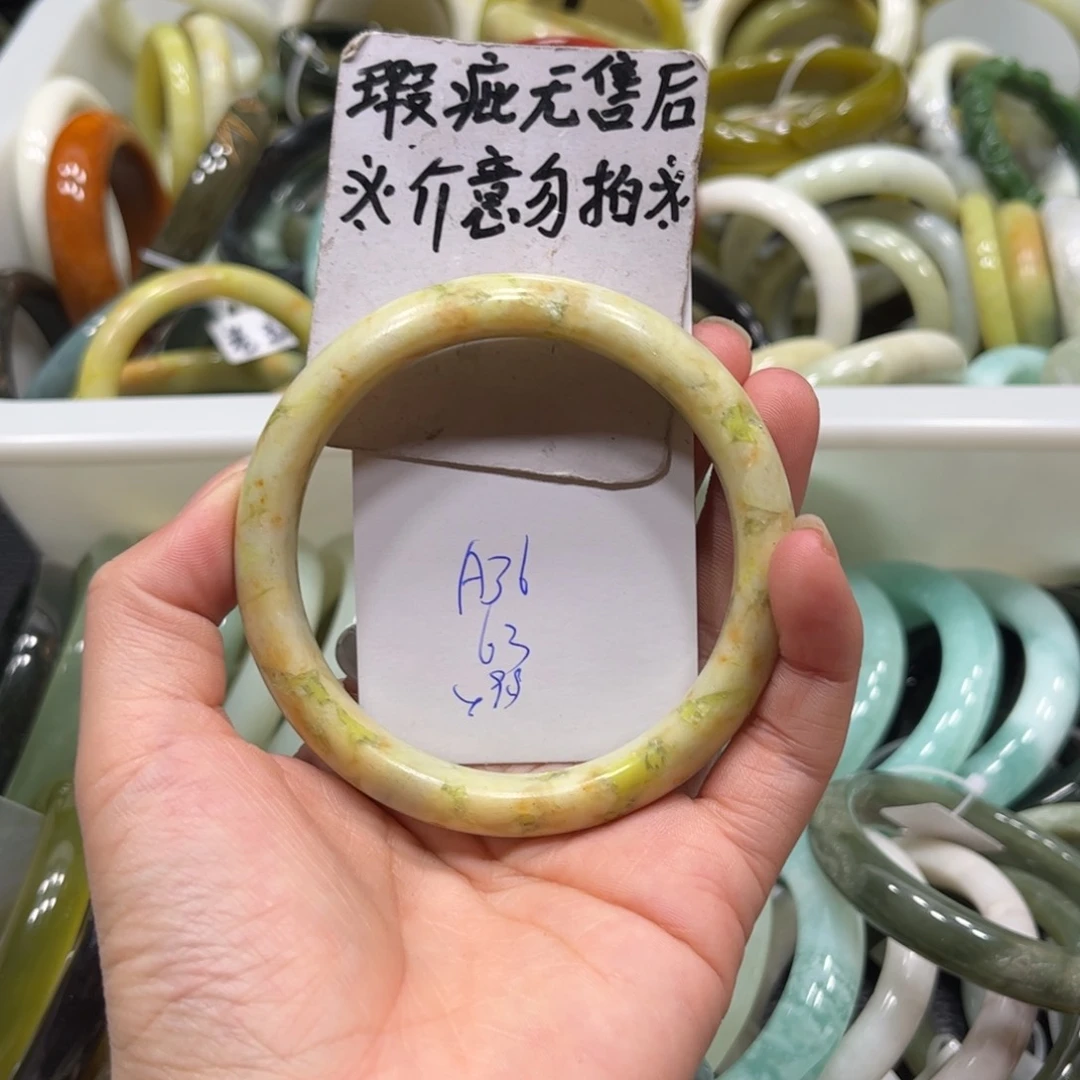 瑕疵无售后
※介意勿拍※
A36
63
¥99